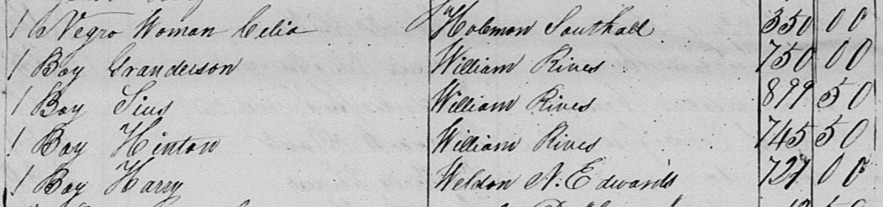 1 Negro Woman Celia Holemon Southall 350 00
1 Boy Granderson William Rives 750 00
1 Boy Sius William Rives 899 50
1 Boy Hinton William Rives 745 50
1 Boy Harry Weldon N. Edwards 727 00